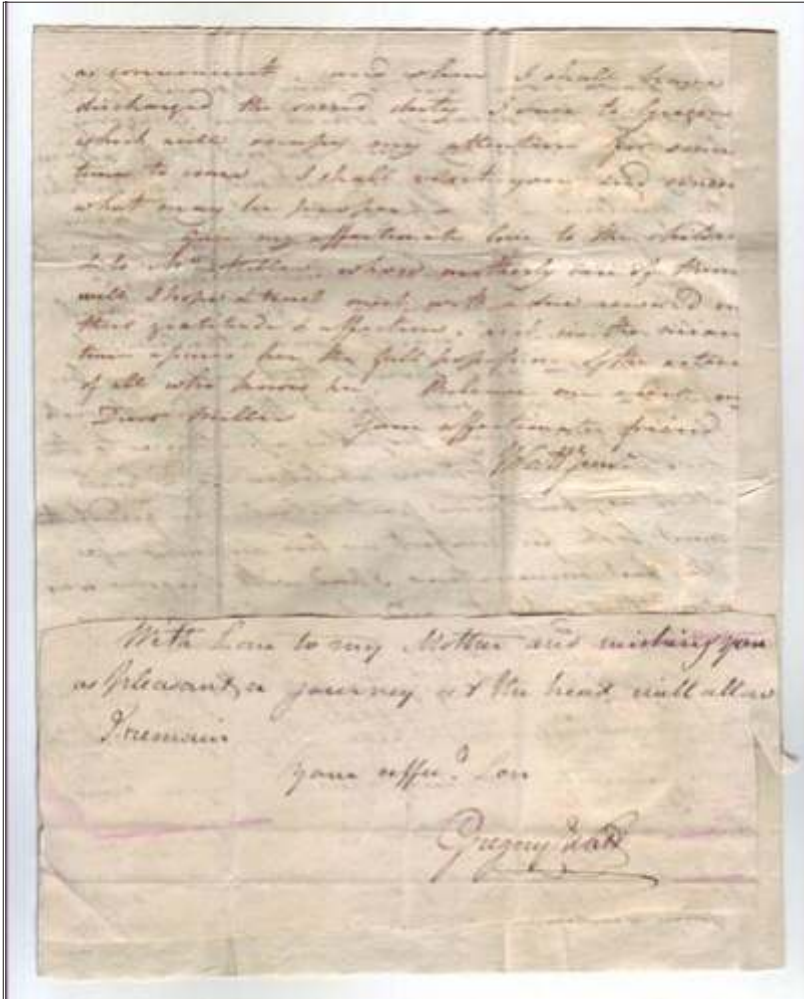 as convenient, and when I shall have
discharged the sacred duty I owe to Gregory
which will occupy my attention for some
time to come I shall you and
what may be proper
Give my affectionate love to the children
& to Mrs Miller, whose motherly care of them
will I hope & trust meet with a due reward in
their gratitude & affection, and in the mean
time her the full of the
of all who know her Believe me
Dear Miller Your affectionate friend
J Watt Junr
With Love to my Mother and wishing you
as pleasant a journey as the heat will allow
I remain
your affec. Son
Gregory Watt